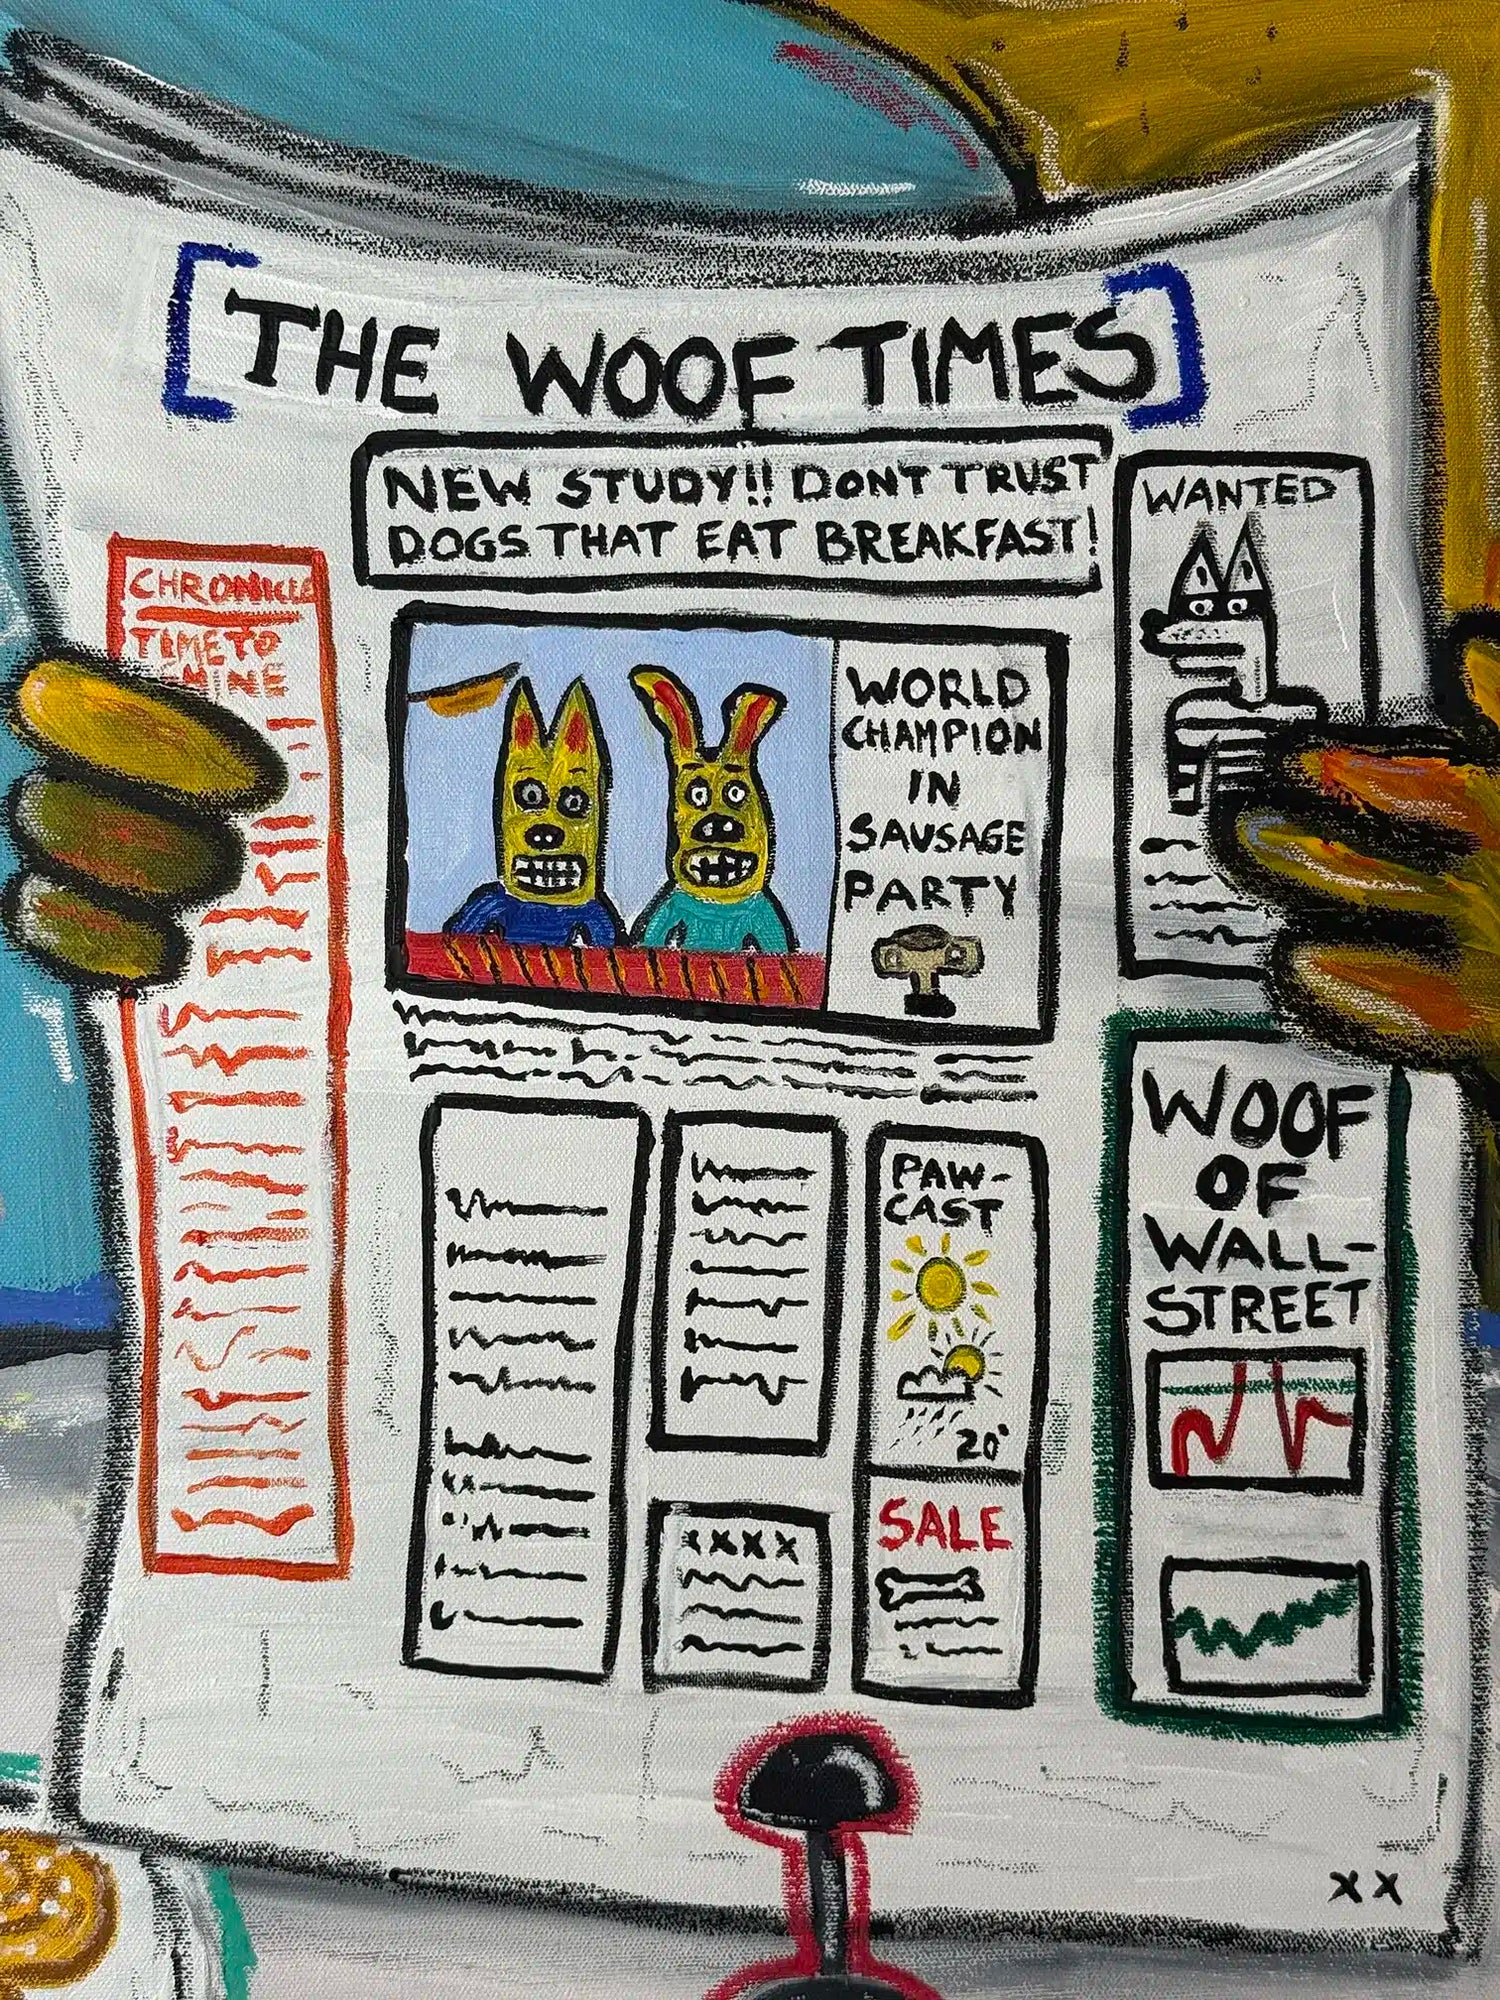 [THE WOOF TIMES]
NEW STUDY!! DONT TRUST
DOGS THAT EAT BREAKFAST!
WANTED
CHRONICLE
TIME TO
WORLD
CHAMPION
IN
SAUSAGE
PARTY
PAW-
CAST
20°
SALE
XXXX
WOOF
OF
WALL-
STREET
XX